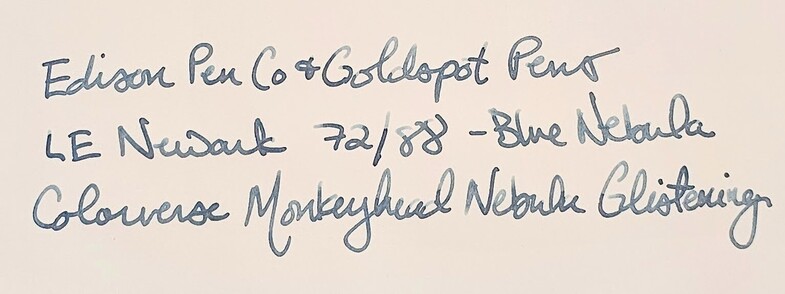 Edison Pen Co & Goldspot Pens
LE Newark 72/88 - Blue Nebula
Colorverse Monkeyhead Nebula Glistening